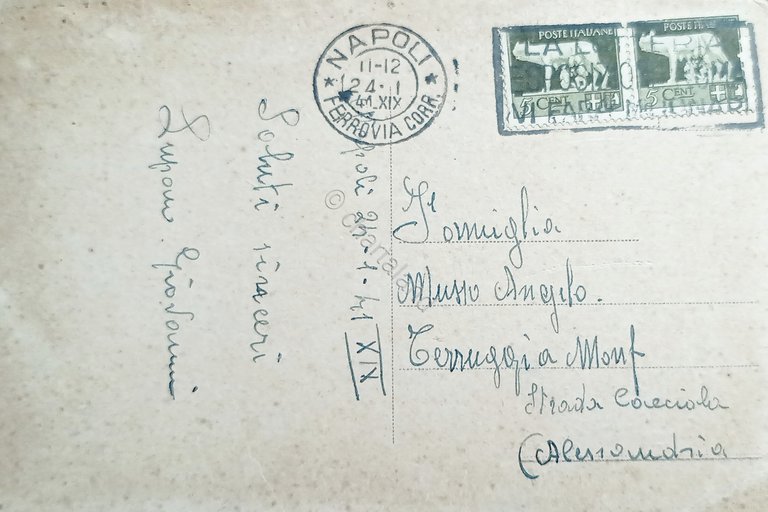 NAPOLI
11-12
24.1
41.XIX
FERROVIA CORR.
POSTE ITALIANE
POSTE ITALIANE
5 CENT.
5 CENT.
poli 24-1-41 XIX
Saluti sinceri
Lupano Giovanni
Famiglia
Musso Angelo.
Terruggia Monf
Strada Cacciola
(Alessandria